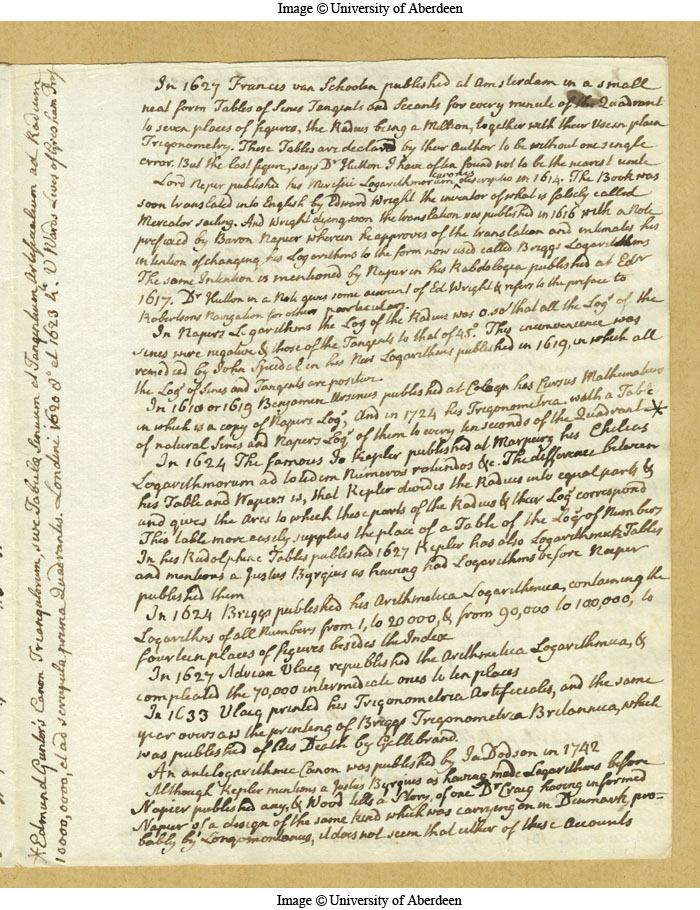 Image © University of Aberdeen
In 1627 Francis van Schooten published at Amsterdam in a small
neat form Tables of Sines Tangents and Secants for every minute of the Quadrant
to seven places of figures, the Radius being a Million, together with their Use in plain
Trigonometry. These Tables are declared by their Author to be without one single
error. But the last figure, says Dr Hutton I have often found not to be the nearest unite
Lord Neper published his Mirifici Logarithmorum canonis descriptio in 1614. The Book was
soon translated into English by Edward Wright the inventor of what is falsely called
Mercator sailing. And Wright dying soon the translation was published in 1616 with a Note
prefixed by Baron Napier wherein he approves of the translation and intimates his
intention of changing his Logarithms to the form now used called Briggs Logarithms
The same Intention is mentioned by Napier in his Rabdologia published at Edr
1617. Dr Hutton in a Note gives some account of Ed Wright & refers to the preface to
Robertsons Navigation for other particulars.
In Napers Logarithms the Log of the Radius was 0. so that all the Logs of the
sines were negative & those of the Tangents to that of 45°. This inconvenience was
remedied by John Speidel in his New Logarithms published in 1619, in which all
the Logs of Sines and Tangents are positive.
In 1618 or 1619 Benjamin Ursinus published at Cologn his Cursus Mathematicus
in which is a copy of Napers Logs, And in 1724 his Trigonometria with a Table
of natural Sines and Napers Logs of them to every ten seconds of the Quadrant *
In 1624 The famous Jo Kepler published at Marpurg his Chilias
Logarithmorum ad totidem Numeros rotundos &c. The difference between
his Table and Napers is, that Kepler divides the Radius into equal parts &
and gives the Arcs to which these parts of the Radius & their Logs correspond
This table more easily supplies the place of a Table of the Logs of Numbers
In his Rudolphine Tables published 1627 Kepler has also Logarithmick Tables
and mentions a Justus Byrgius as having had Logarithms before Neper
published them
In 1624 Briggs published his Arithmetica Logarithmica, containing the
Logarithms of all Numbers from 1, to 20000, & from 90,000 to 100,000, to
fourteen places of figures besides the Index
In 1627 Adrian Vlacq republished the Arithmetica Logarithmica, &
compleated the 70,000 intermediate ones to ten places
In 1633 Vlacq printed his Trigonometria Artificialis, and the same
year oversaw the printing of Briggs Trigonometria Britannica, which
was published after his Death by Gellibrand.
An antilogarithmic Canon was published by Ja Dodson in 1742
Although Kepler mentions a Justus Byrgius as having made Logarithms before
Napier published any, & Wood tells a Story, of one Dr Craig having informed
Napier of a design of the same kind which was carrying on in Denmark, pro-
bably by Longomontanus, it does not seem that either of these Accounts
* Edmund Gunter's Canon Triangulorum, sive Tabulæ Sinuum et Tangentium Artificialium ad Radium
10000,0000, et ad scrupula prima Quadrantis. Londini 1620 8° et 1623 4to. V Wards Lives of Gresham Prof
Image © University of Aberdeen